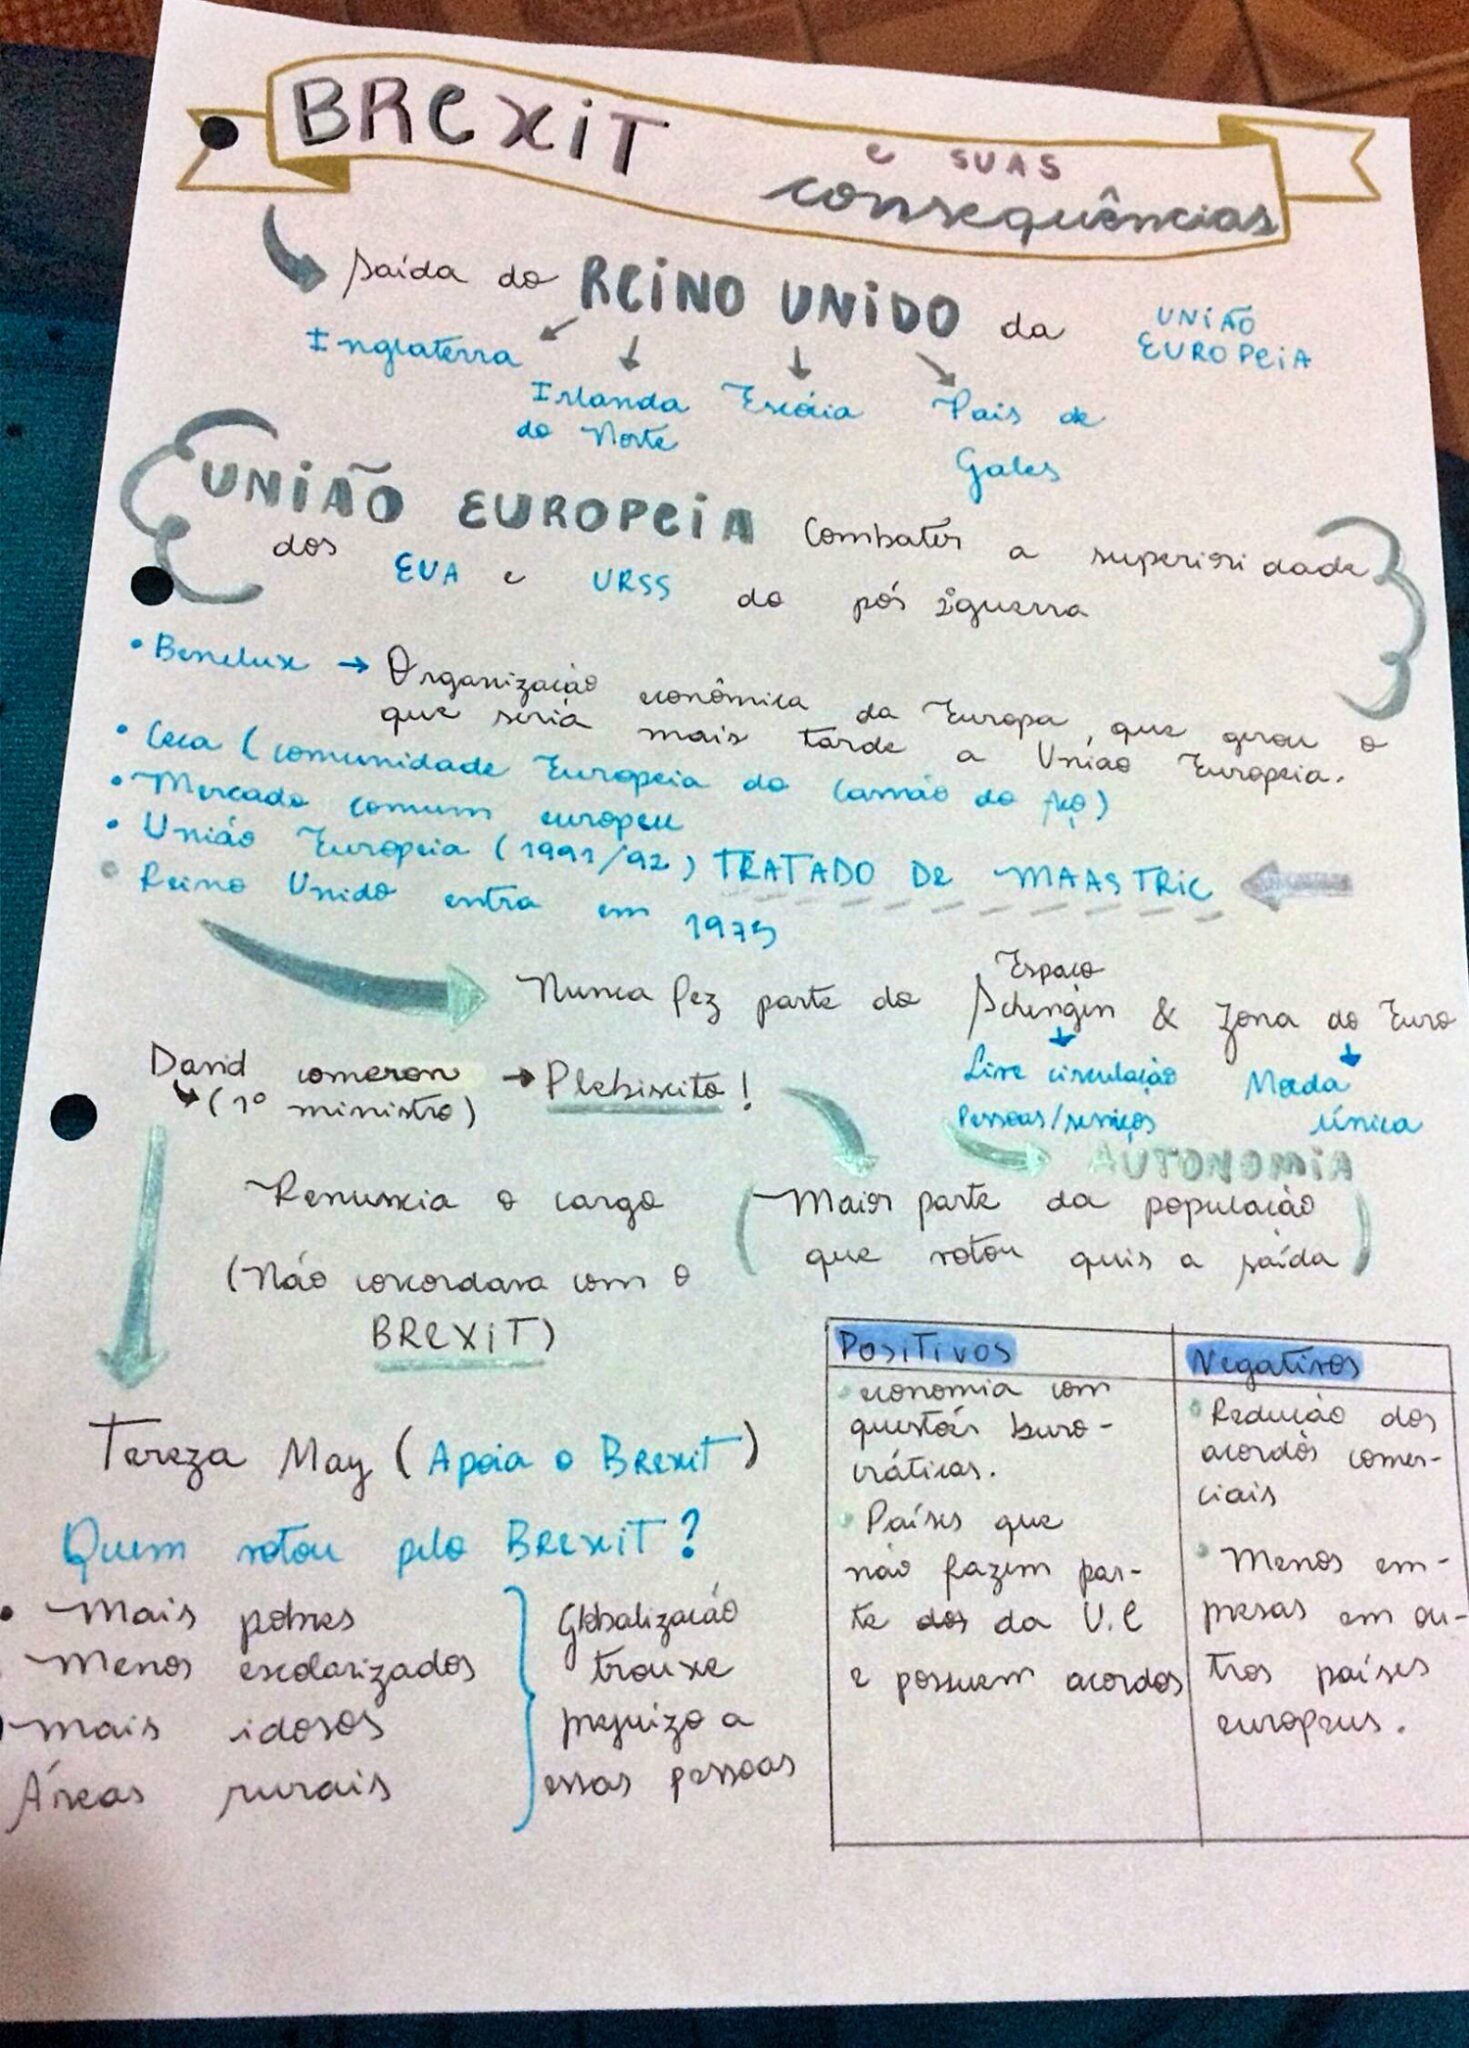 BREXIT e SUAS
consequências
saída do REINO UNIDO da UNIÃO EUROPEIA
Inglaterra
Irlanda do Norte
Escócia
País de Gales
UNIÃO EUROPEIA Combater a superioridade
dos EUA e URSS do pós 2ªguerra
• Benelux → Organização econômica da Europa, que gerou o
que seria mais tarde a União Europeia.
• Ceca (comunidade Europeia do Carvão do Aço)
• Mercado comum europeu
• União Europeia (1991/92) TRATADO DE MAASTRIC
• Reino Unido entra em 1975
Nunca fez parte do Espaço Schengin & Zona do Euro
Livre circulação
Pessoas/serviços
Moeda
única
David comeron → Plebiscito!
(1º ministro)
AUTONOMIA
Renuncia o cargo
(Maior parte da população
que votou quis a saída)
(Não concordava com o
BREXIT)
Tereza May (Apoia o Brexit)
Quem votou pelo BREXIT?
• Mais pobres
Menos escolarizados
Mais idosos
Áreas rurais
Globalização
trouxe
prejuízo a
essas pessoas
Positivos
• economia com
questões buro-
cráticas.
• Países que
não fazem par-
te dos da U.E
e possuem acordos
Negativos
• Redução dos
acordos comer-
ciais
• Menos em-
presas em ou-
tros países
europeus.